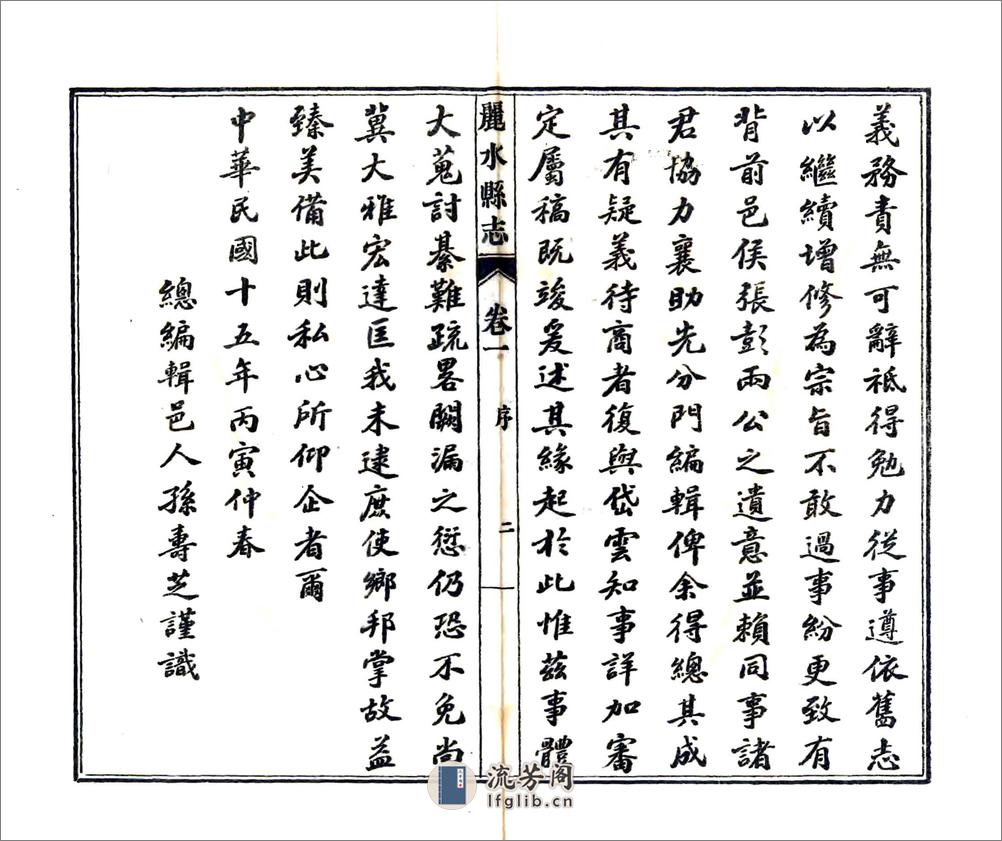 義務責無可辭祗得勉力從事遵依舊志
以繼續增修為宗旨不敢過事紛更致有
背前邑侯張彭兩公之遺意並賴同事諸
君協力襄助先分門編輯俾余得總其成
其有疑義待商者復與岱雲知事詳加審
定屬稿既竣爰述其緣起於此惟茲事體
麗水縣志
卷一
序
二
大蒐討綦難疏畧闕漏之愆仍恐不免尚
冀大雅宏達匡我未逮庶使鄉邦掌故益
臻美備此則私心所仰企者爾
中華民國十五年丙寅仲春
總編輯邑人孫壽芝謹識
流芳阁
lfglib.cn